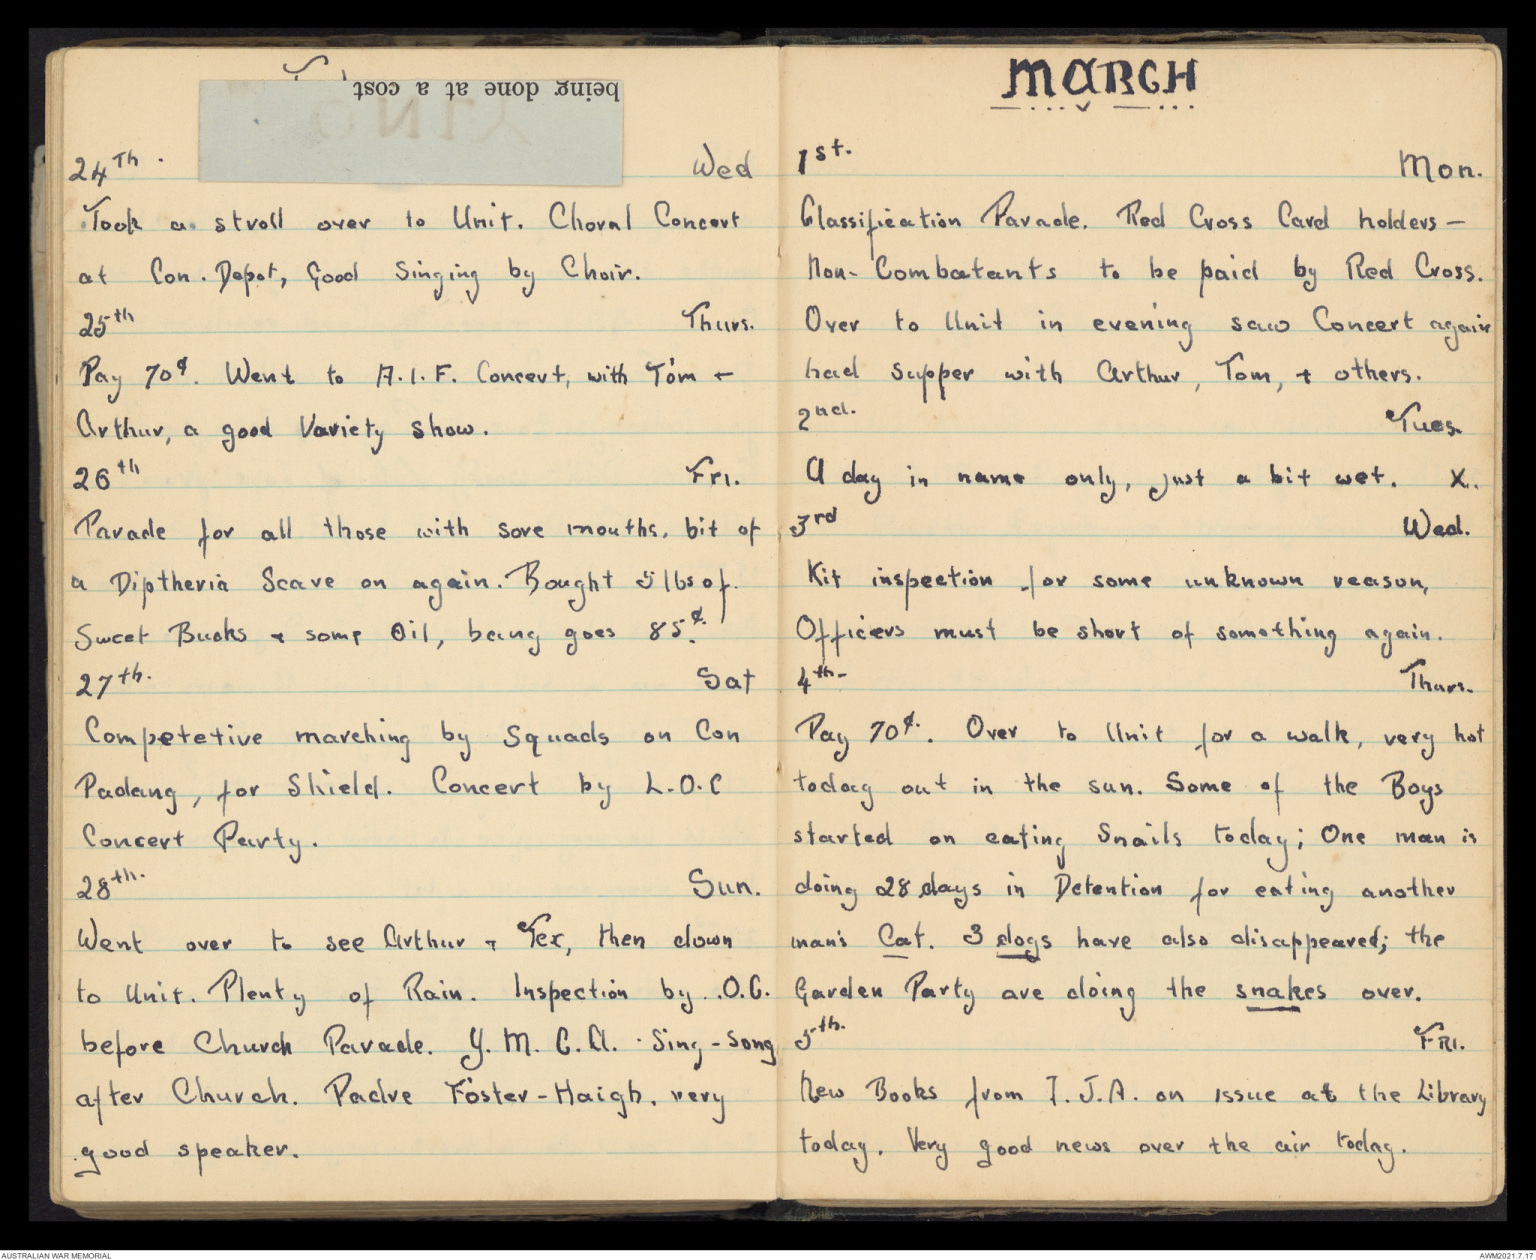 being done at a cost
24th. Wed
Took a stroll over to Unit. Choral Concert
at Con. Depot, Good Singing by Choir.
25th Thurs.
Pay 70¢. Went to A.I.F. Concert, with Tom +
Arthur, a good Variety show.
26th Fri.
Parade for all those with sore mouths, bit of
a Diptheria Scare on again. Bought 5 lbs of
Sweet Bucks + some Oil, bang goes 85¢.
27th. Sat
Competetive marching by Squads on Con
Padang, for Shield. Concert by L.O.C
Concert Party.
28th. Sun.
Went over to see Arthur + Tex, then down
to Unit. Plenty of Rain. Inspection by O.C.
before Church Parade. Y.M.C.A. Sing-Song
after Church. Padre Foster-Haigh. very
good speaker.
MARCH
1st. Mon.
Classification Parade. Red Cross Card holders -
Non-Combatants to be paid by Red Cross.
Over to Unit in evening saw Concert again
had supper with Arthur, Tom, + others.
2nd. Tues.
A day in name only, just a bit wet. X.
3rd Wed.
Kit inspection for some unknown reason,
Officers must be short of something again.
4th- Thurs.
Pay 70¢. Over to Unit for a walk, very hot
today out in the sun. Some of the Boys
started on eating Snails today; One man is
doing 28 days in Detention for eating another
man's Cat. 3 dogs have also disappeared; the
Garden Party are doing the snakes over.
5th. FRI.
New Books from I.J.A. on issue at the Library
today. Very good news over the air today.
AUSTRALIAN WAR MEMORIAL
AWM2021.7.17